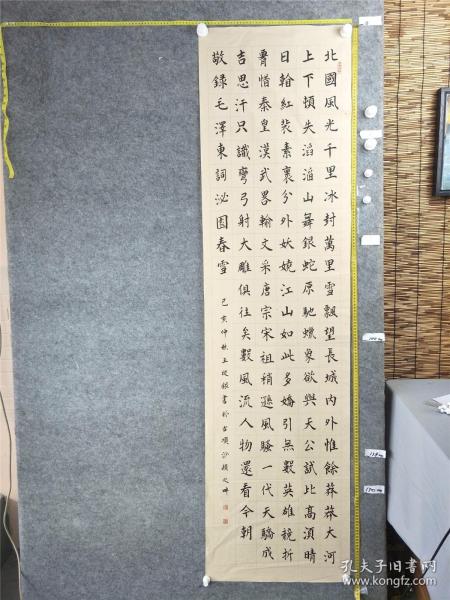 北國風光千里冰封萬里雪飄望長城内外惟餘莽莽大河
上下頓失滔滔山舞銀蛇原馳蠟象欲與天公試比高須晴
日輸紅裝素裹分外妖嬈江山如此多嬌引無數英雄競折
腰惜秦皇漢武畧輸文采唐宗宋祖稍遜風騷一代天驕成
吉思汗只識彎弓射大雕俱往矣數風流人物還看今朝
敬録毛澤東詞沁園春雪
己亥仲秋王
書於古項沙潁之畔
孔夫子旧书网
www.kongfz.com